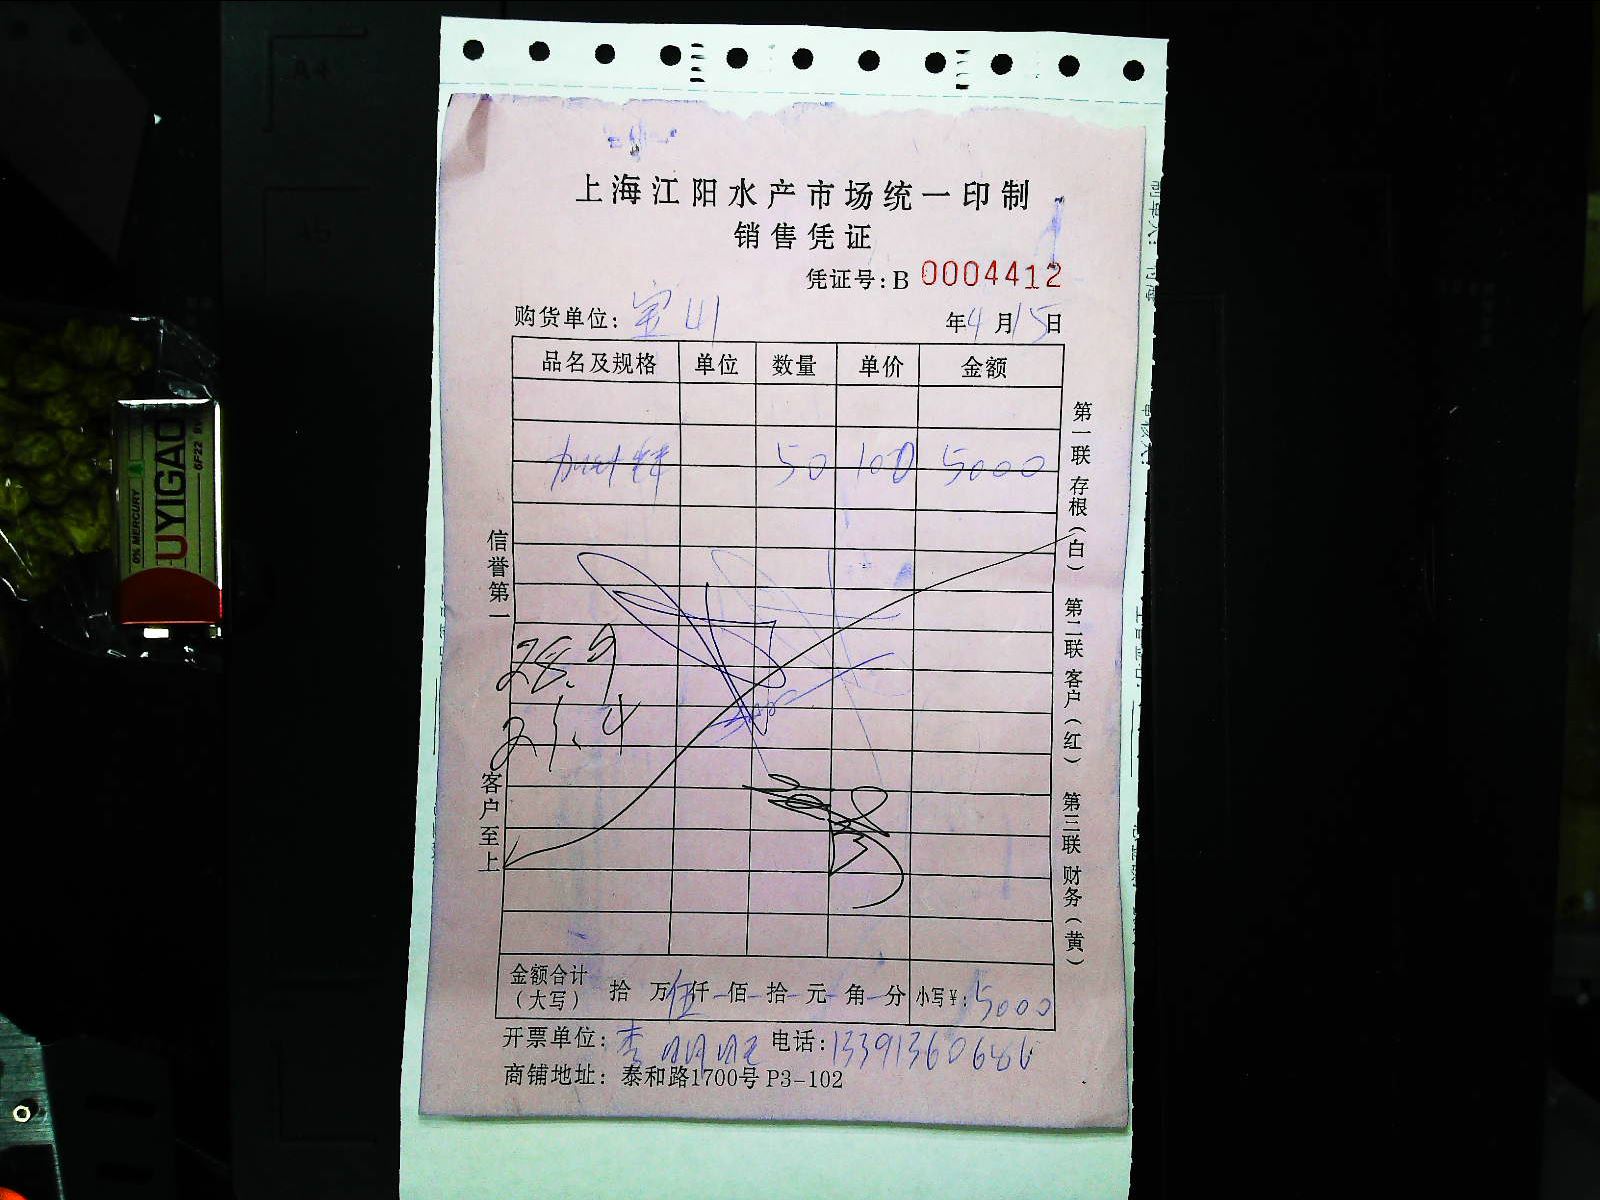 上海江阳水产市场统一印制
销售凭证
凭证号:B 0004412
购货单位: 宝山 年4月15日
品名及规格 单位 数量 单价 金额
50 100 5000
28.9
21.4
信誉第一
客户至上
第一联 存根(白) 第二联 客户(红) 第三联 财务(黄)
金额合计(大写) 拾 万 伍仟 佰 拾 元 角 分 小写¥: 5000
开票单位: 李 电话: 13391360686
商铺地址: 泰和路1700号 P3-102
UYIGAO
0% MERCURY
6F22